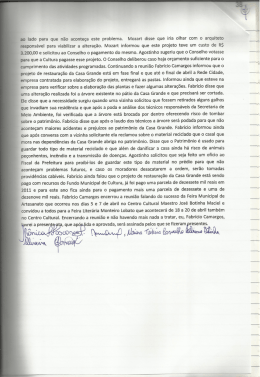 ao lado para que não aconteça este problema. Mozart disse que iria olhar com o arquiteto
responsável para viabilizar a alteração. Mozart informou que este projeto tem um custo de R$
3.200,00 e solicitou ao Conselho o pagamento do mesmo. Agostinho sugeriu que o Conselho votasse
para que a Cultura pagasse esse projeto. O Conselho deliberou caso haja orçamento suficiente para o
cumprimento das atividades programadas. Continuando a reunião Fabrício Camargos informou que o
projeto de restauração da Casa Grande está em fase final e que até o final de abril a Rede Cidade,
empresa contratada para elaboração do projeto, irá entregar. Informou ainda que esteve na
empresa para verificar sobre a elaboração das plantas e fazer algumas alterações. Fabrício disse que
uma alteração realizada foi a árvore existente no pátio da Casa Grande e que precisará ser cortada.
Ele disse que a necessidade surgiu quando uma vizinha solicitou que fossem retirados alguns galhos
que invadiam sua residência e que após a solicitação foi verificado com responsáveis da Secretaria de
Meio Ambiente, foi verificado que a árvore está brocada por dentro oferecendo risco de tombar
sobre o patrimônio. Fabrício disse que após o laudo dos técnicos a árvore será podada para que não
aconteçam maiores acidentes e prejuízos ao patrimônio da Casa Grande. Fabrício informou ainda
que após conversa com a vizinha solicitante ela reclamou sobre o material reciclado que o casal que
mora nas dependências da Casa Grande abriga no patrimônio. Disse que o Patrimônio é usado para
guardar todo tipo de material reciclado e que além de danificar a casa ainda há risco de animais
peçonhentos, incêndio e a transmissão de doenças. Agostinho sugeriu que seja feito um ofício ao
Fiscal da Prefeitura para proibi-los de guardar este tipo de material no prédio para que não
aconteçam problemas futuros, e caso os moradores desacatarem a ordem, serão tomadas
providências cabíveis. Fabrício ainda falou que o projeto de restauração da Casa Grande está sendo
pago com recursos do Fundo Municipal de Cultura, já foi pago uma parcela de dezessete mil reais em
2011 e para este ano fica ainda para o pagamento mais uma parcela de dezessete e uma de
dezenove mil reais. Fabrício Camargos encerrou a reunião falando do sucesso da Feira Municipal de
Artesanato que ocorreu nos dias 5 e 7 de abril no Centro Cultural Maestro José Botinha Maciel e
convidou a todos para a Feira Literária Monteiro Lobato que acontecerá de 18 a 20 de abril também
no Centro Cultural. Encerrando a reunião e não havendo mais nada a tratar, eu, Fabrício Camargos,
lavrei a presente ata, que após lida e aprovada, será assinada pelos que se fizeram presentes.